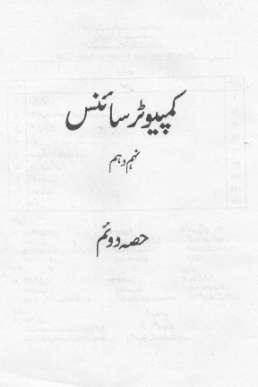 کمپیوٹر سائنس
نہم دہم
حصہ دوئم